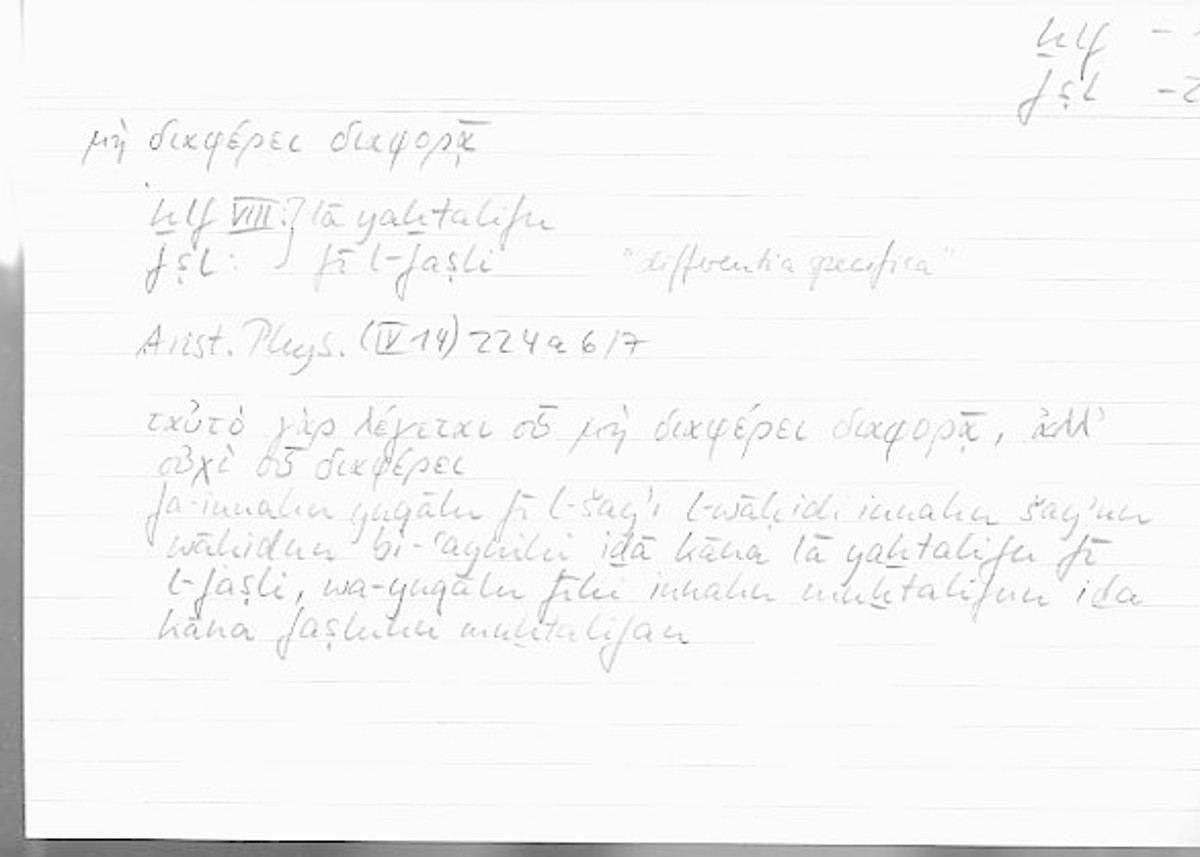 ḫlf -
fṣl -2
μὴ διαφέρει διαφορᾷ
ḫlf VIII: } lā yaḫtalifu
fṣl: fī l-faṣli "differentia specifica"
Arist. Phys. (IV 14) 224 a 6/7
ταὐτὸ γὰρ λέγεται οὗ μὴ διαφέρει διαφορᾷ, ἀλλ'
οὐχὶ οὗ διαφέρει
fa-innahu yuqālu fī l-šay'i l-wāḥidi innahu šay'un
wāḥidun bi-ʿaynihi iḏā kāna lā yaḫtalifu fī
l-faṣli, wa-yuqālu fīhi innahu muḫtalifun iḏa
kāna faṣluhu muḫtalifan